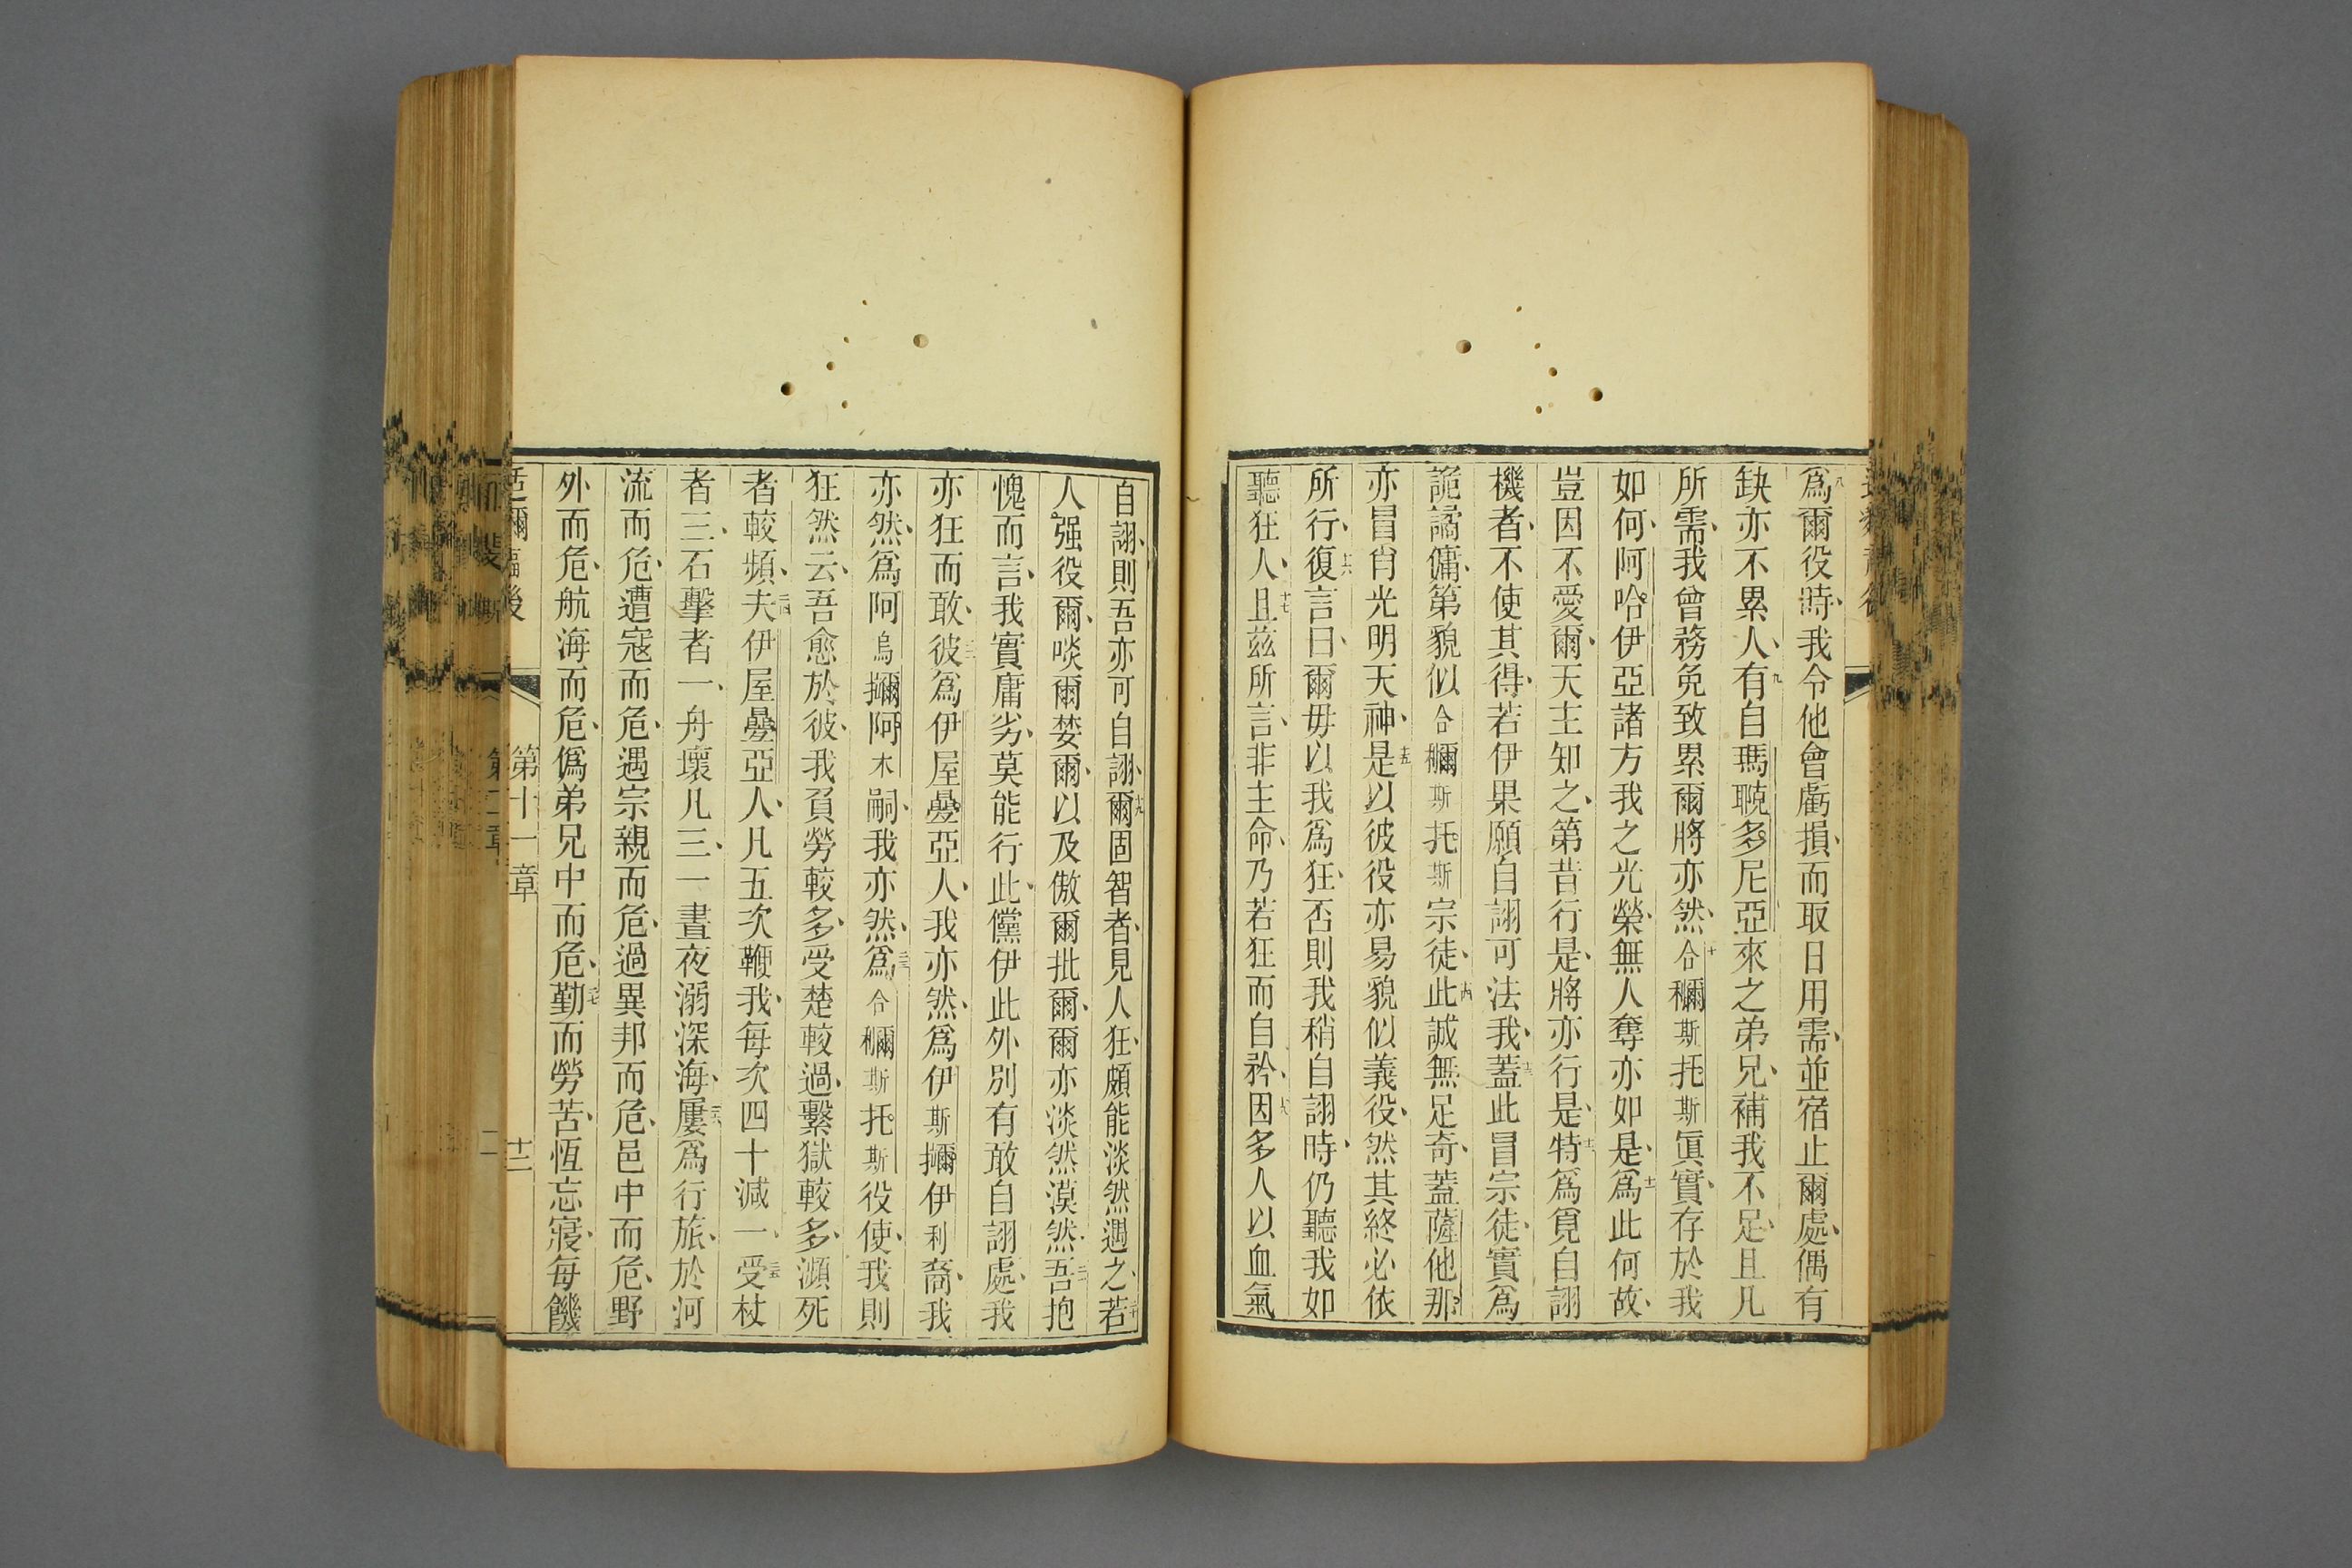 爲爾役時、我令他會虧損、而取日用需、並宿止爾處、偶有
缺亦不累人、有自瑪聭多尼亞來之弟兄、補我不足、且凡
所需、我曾務免致累爾將亦然、合穪斯托斯眞實、存於我
如何、阿哈伊亞諸方我之光榮、無人奪亦如是、爲此何故、
豈因不愛爾、天主知之、第昔行是、將亦行是、特爲覓自詡
機者、不使其得、若伊果願自詡可法我、蓋此冒宗徒、實爲
詭譎傭、第貌似合穪斯托斯宗徒、此誠無足奇、蓋薩他那
亦冒肖光明天神、是以彼役亦易貌似義役、然其終必依
所行、復言曰、爾毋以我爲狂、否則我稍自詡時、仍聽我如
聽狂人、且茲所言、非主命、乃若狂而自矜、因多人以血氣
自詡、則吾亦可自詡、爾固智者、見人狂、頗能淡然遇之、若
人强役爾、啖爾婪爾、以及傲爾批爾、爾亦淡然漠然、吾抱
愧而言、我實庸劣、莫能行此、儻伊此外別有敢自詡處、我
亦狂而敢、彼爲伊屋曡亞人、我亦然、爲伊斯攡伊利裔、我
亦然、爲阿烏攡阿木嗣、我亦然、爲合穪斯托斯役使、我則
狂然云、吾愈於彼、我負勞較多、受楚較過、繫獄較多、瀕死
者較頻、夫伊屋曡亞人、凡五次鞭我、每次四十減一、受杖
者三、石擊者一、舟壞凡三、一晝夜溺深海、屢爲行旅、於河
流而危、遭寇而危、遇宗親而危、過異邦而危、邑中而危、野
外而危、航海而危、僞弟兄中而危、勤而勞苦、恆忘寢、每饑
第十一章
十二